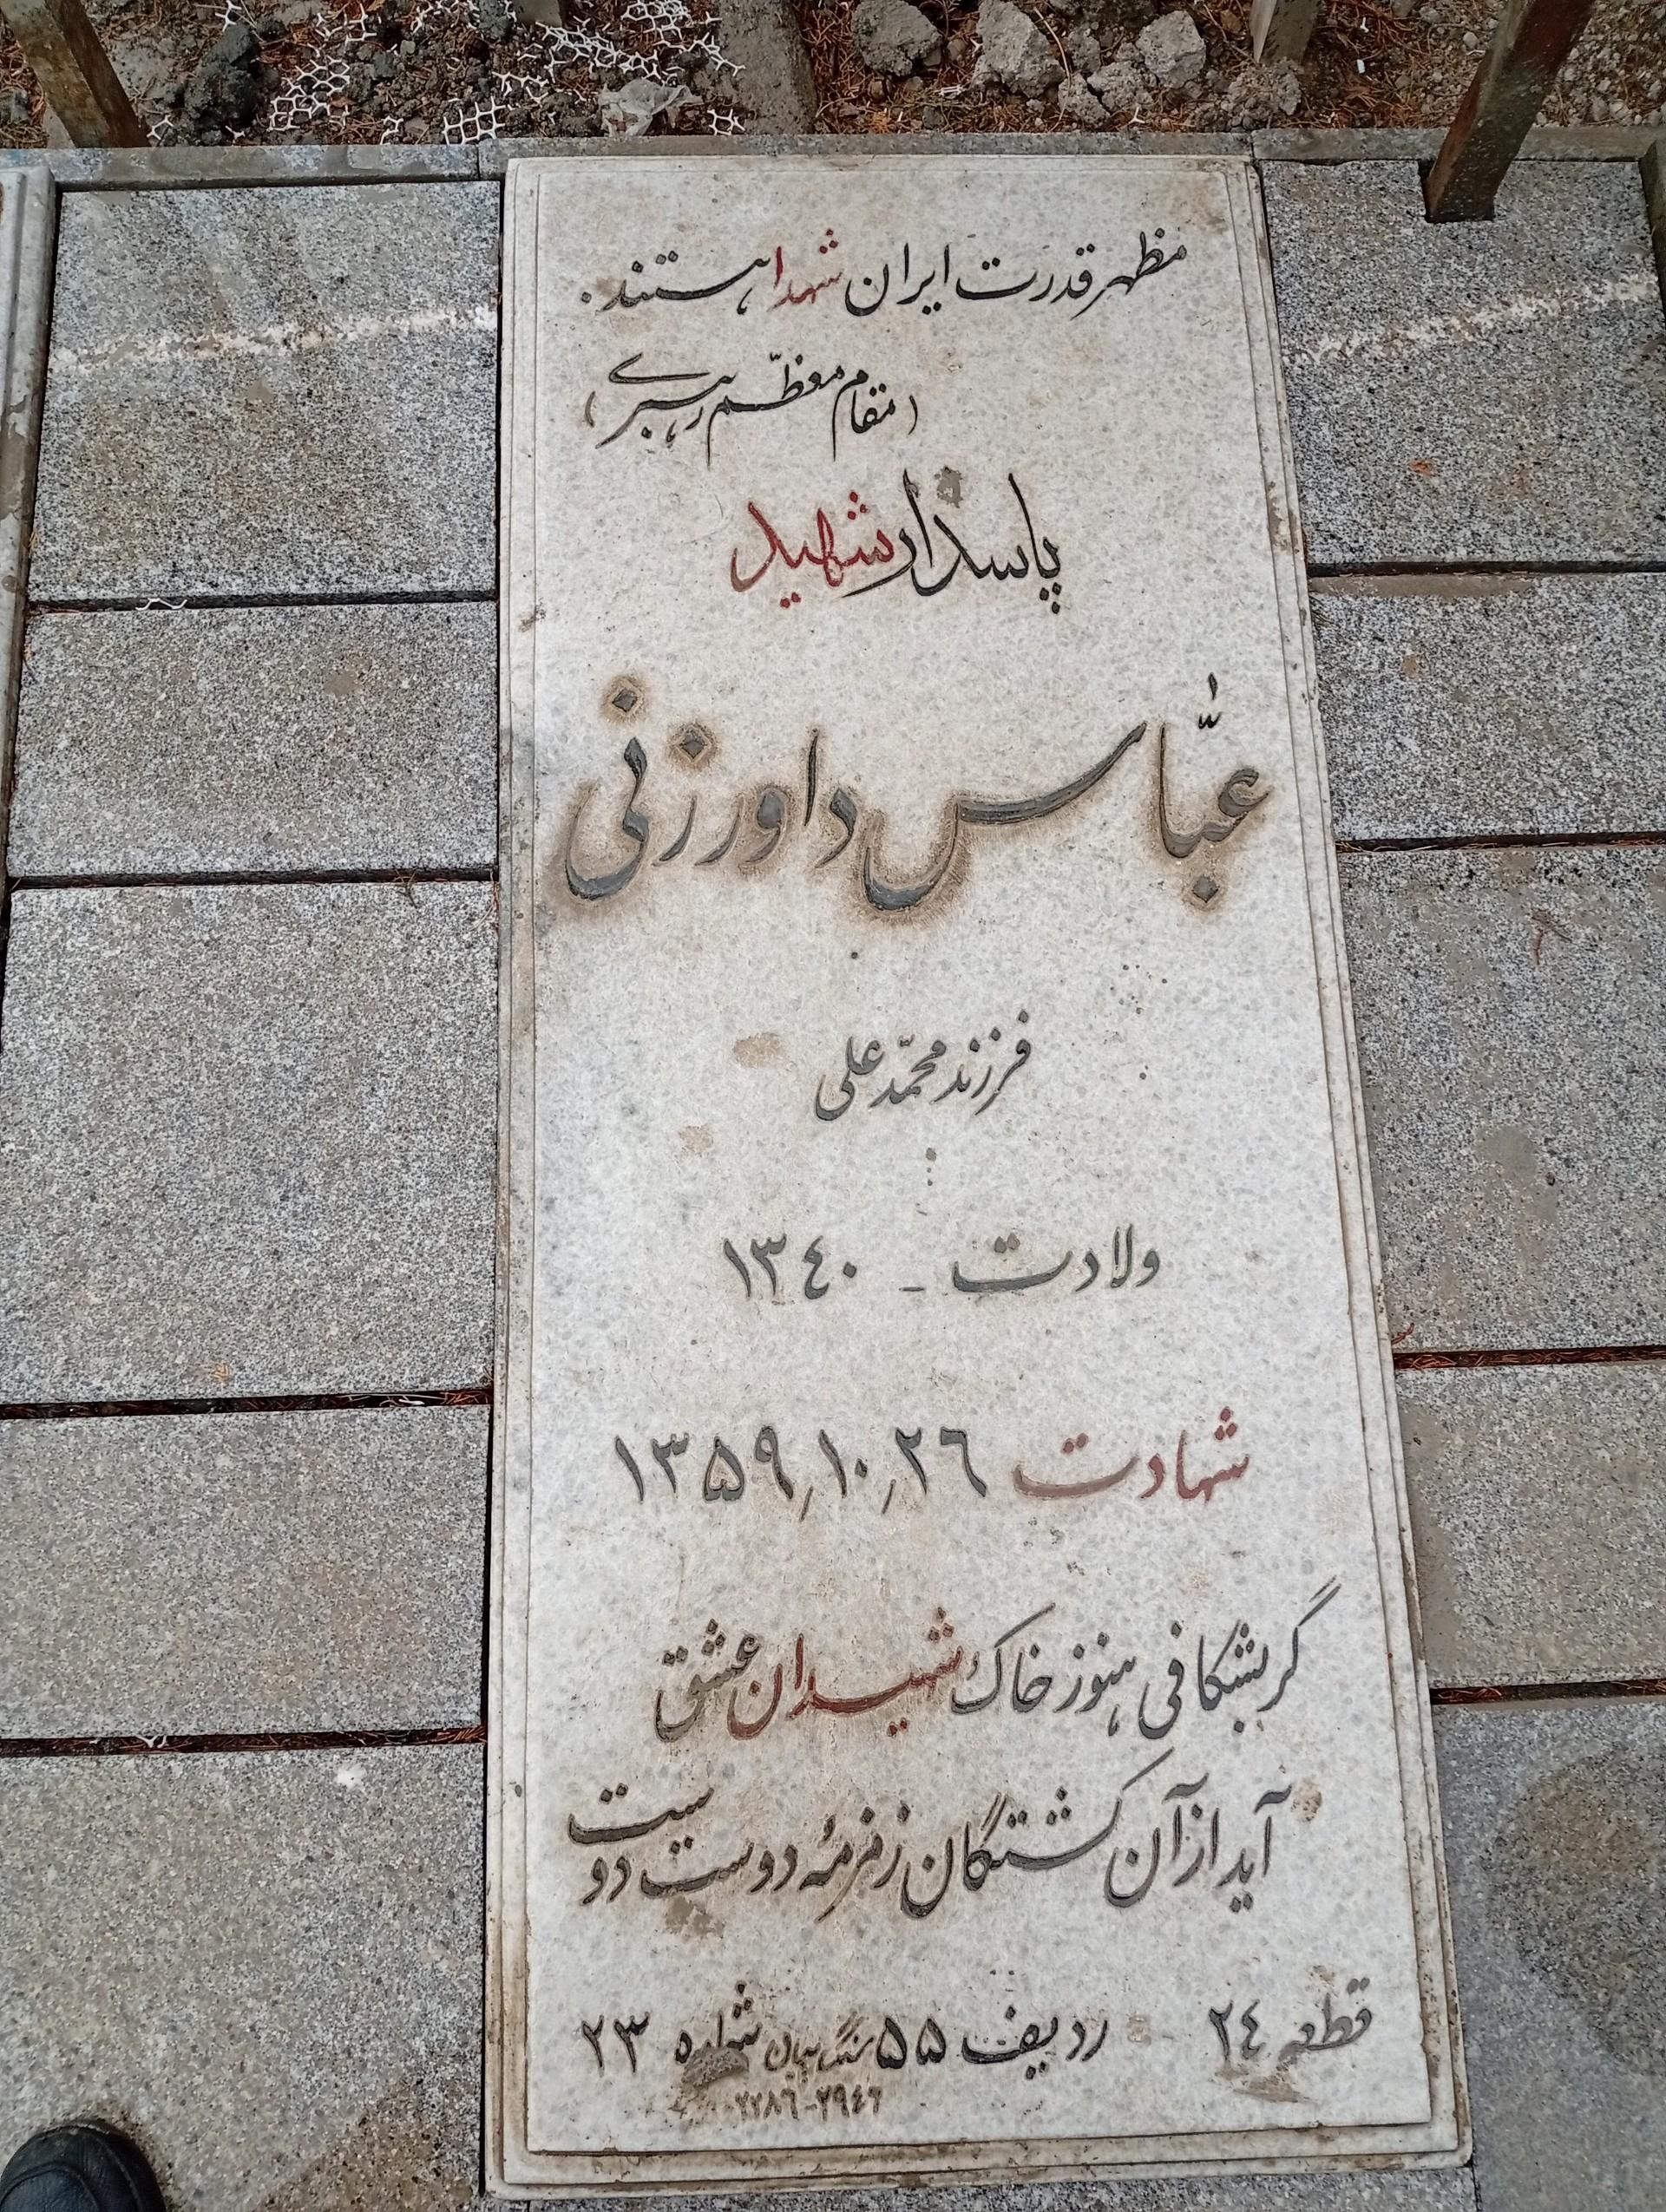 مظهر قدرت ایران شهدا هستند.
(مقام معظّم رهبری)
پاسدار شهید
عبّاس داورزنی
فرزند محمّد علی
ولادت - ۱۳٤۰
شهادت ۲٦٫۱۰٫۱۳۵۹
گر بشکافی هنوز خاک شهیدان عشق
آید از آن کشتگان زمزمهٔ دوست دوست
قطعه ۲٤ ردیف ۵۵ شماره ۲۳